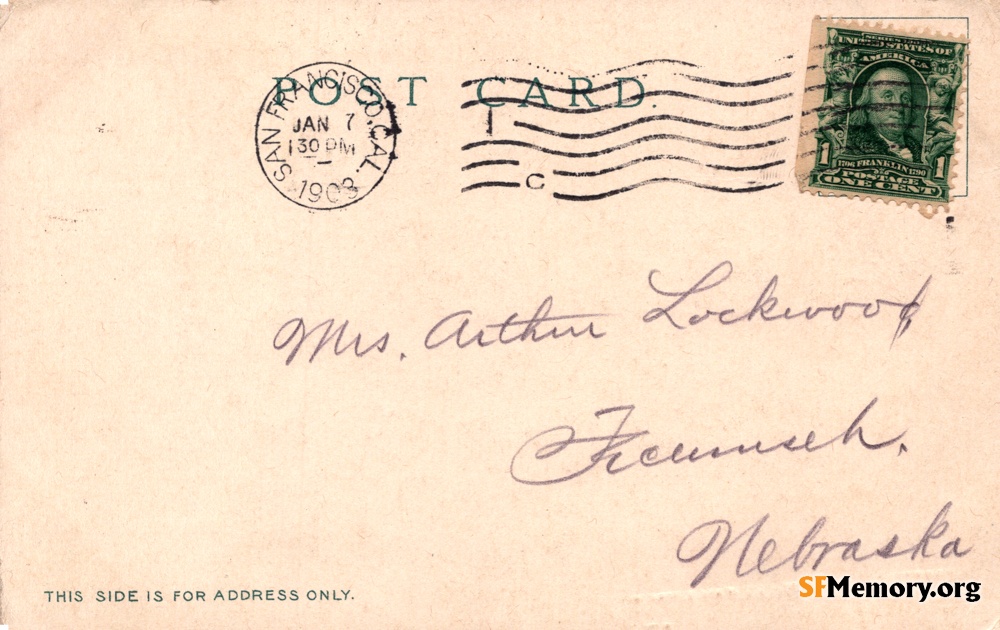 POST CARD
SAN FRANCISCO, CAL.
JAN 7
1 30 PM
1908
C
SERIES 1902
UNITED STATES OF
AMERICA
1 1
1706 FRANKLIN 1790
POSTAGE
ONE CENT
Mrs. Arthur Lockwood
Tecumseh.
Nebraska
THIS SIDE IS FOR ADDRESS ONLY.
SFMemory.org